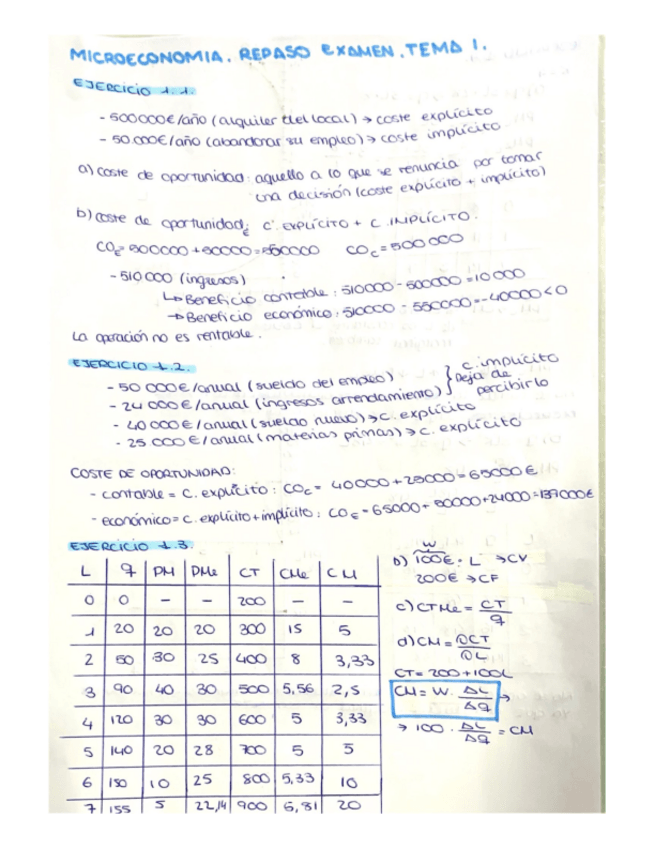 MICROECONOMIA. REPASO EXAMEN. TEMA 1.
EJERCICIO 1.1.
- 500000€/año (alquiler del local) → coste explícito
- 50.000€/año (abandonar su empleo) → coste implícito
a) coste de oportunidad: aquello a lo que se renuncia por tomar
una decisión (coste explícito + implícito)
b) coste de oportunidad: C. EXPLÍCITO + C. IMPLÍCITO.
CO_E = 500000 + 50000 = 550000 CO_C = 500 000
- 510 000 (ingresos)
↳ Beneficio contable: 510000 - 500000 = 10 000
→ Beneficio económico: 510000 - 550000 = -40000 < 0
La operación no es rentable.
EJERCICIO 1.2.
- 50 000€/anual (sueldo del empleo) } c. implícito
- 24 000€/anual (ingresos arrendamiento) } Deja de percibirlo
- 40 000€/anual (sueldo nuevo) → c. explícito
- 25 000 €/anual (materias primas) → c. explícito
COSTE DE OPORTUNIDAD:
- contable = c. explícito: CO_C = 40000 + 25000 = 65000 €
- económico = c. explícito + implícito: CO_E = 65000 + 50000 + 24000 = 139000€
EJERCICIO 1.3.
L q PM PMe CT CMe CM
0 0 - - 200 - -
1 20 20 20 300 15 5
2 50 30 25 400 8 3,33
3 90 40 30 500 5,56 2,5
4 120 30 30 600 5 3,33
5 140 20 28 700 5 5
6 150 10 25 800 5,33 10
7 155 5 22,14 900 5,81 20
w
b) 100€ · L → CV
200€ → CF
c) CTMe = CT/q
d) CM = DCT/DL
CT = 200 + 100L
CM = W · ΔL/Δq →
→ 100 · ΔL/Δq = CM